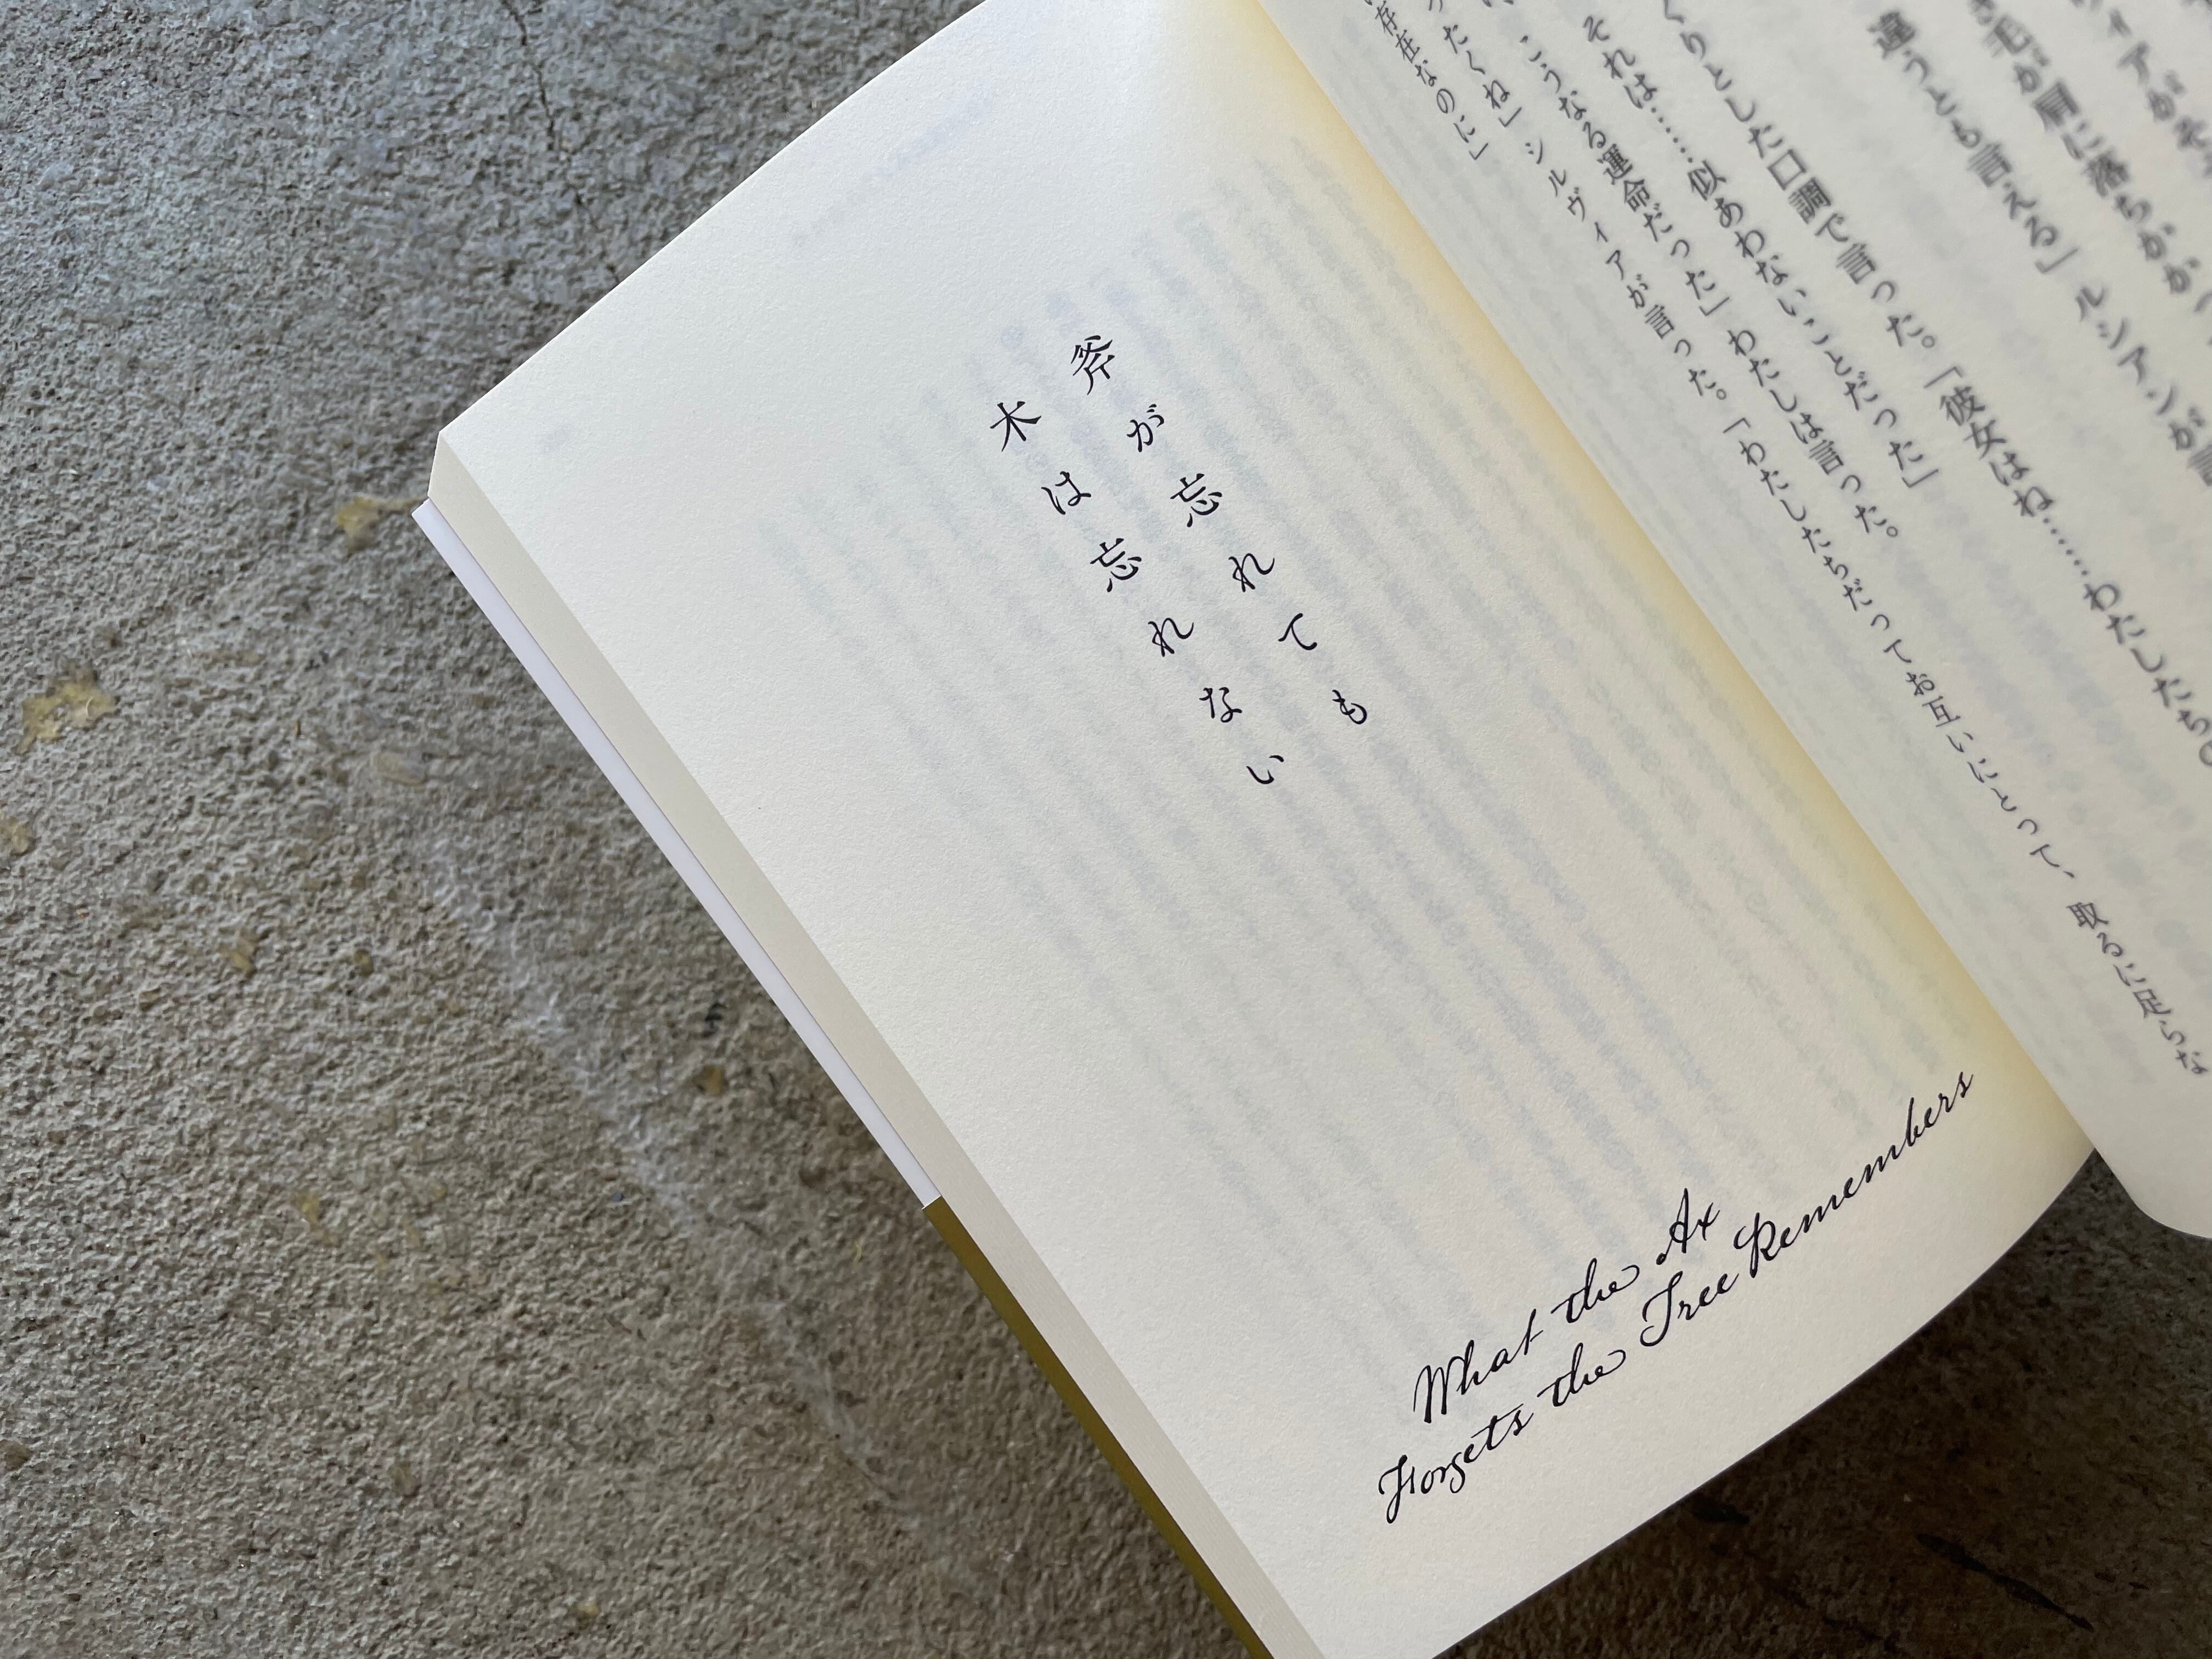 違うとも言える」ルシアンが言
くりとした口調で言った。「彼女はね……わたしたち
それは……似あわないことだった」
こうなる運命だった」わたしは言った。
ったくね」シルヴィアが言った。「わたしたちだってお互いにとって、取るに足らな
存在なのに」
斧が忘れても
木は忘れない
What the Ax
Forgets the Tree Remembers